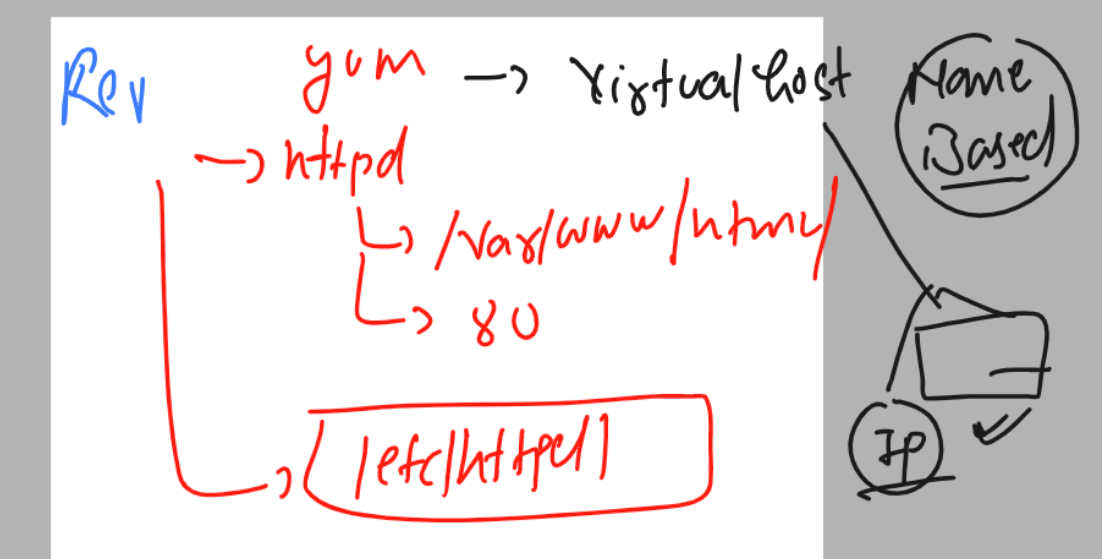 Rev
yum → virtual host
Name
Based
→ httpd
→ /var/www/html/
→ 80
/etc/httpd/
IP